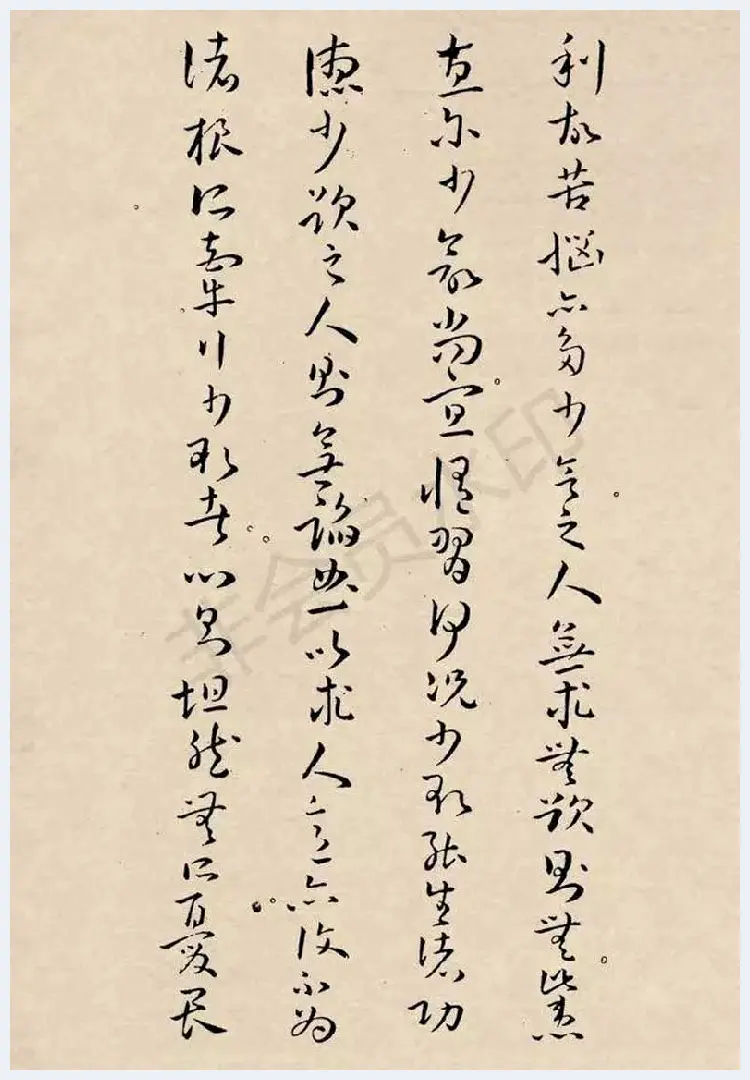 利故苦惱亦多少欲之人無求無欲則無此患
直爾少欲尚宜修習何況少欲能生諸功
德少欲之人則無諂曲以求人意亦復不為
諸根所牽行少欲者心則坦然無所憂畏
非会员水印